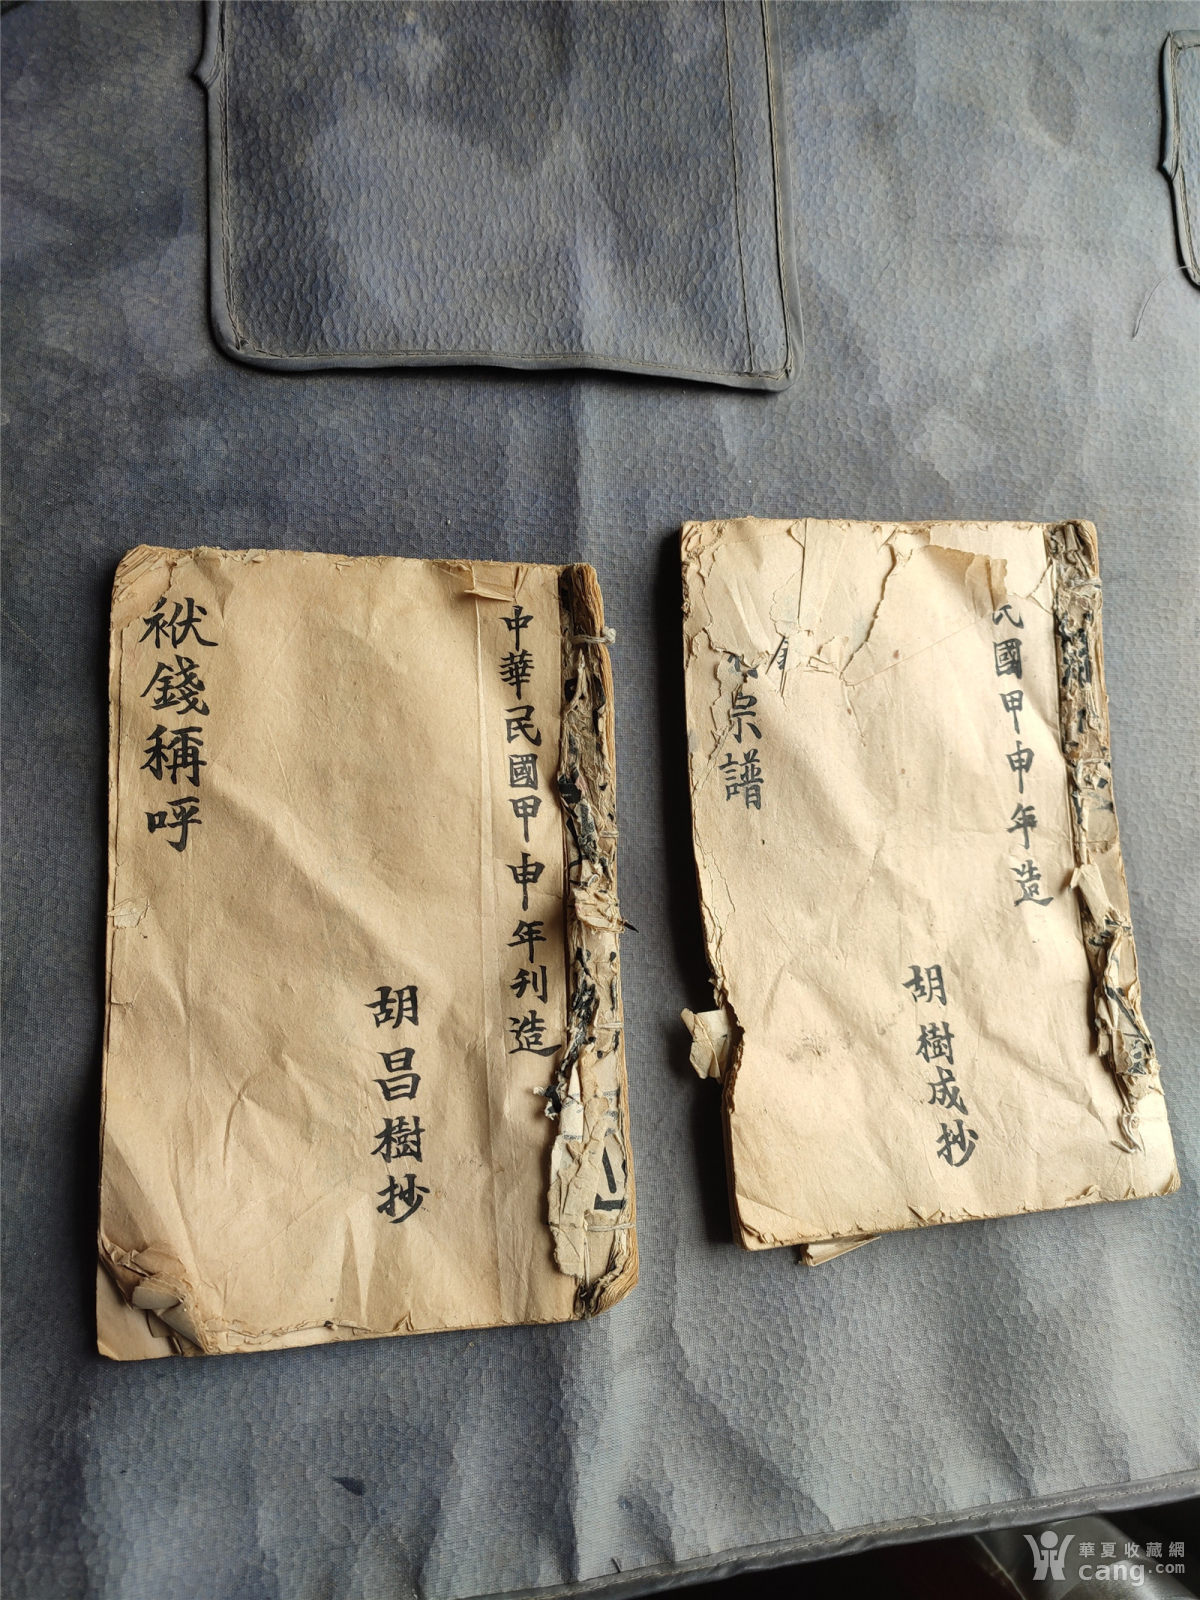 中華民國甲申年刊造
胡昌樹抄
袱錢稱呼
民國甲申年造
胡樹成抄
宗譜
華夏收藏網
cang.com